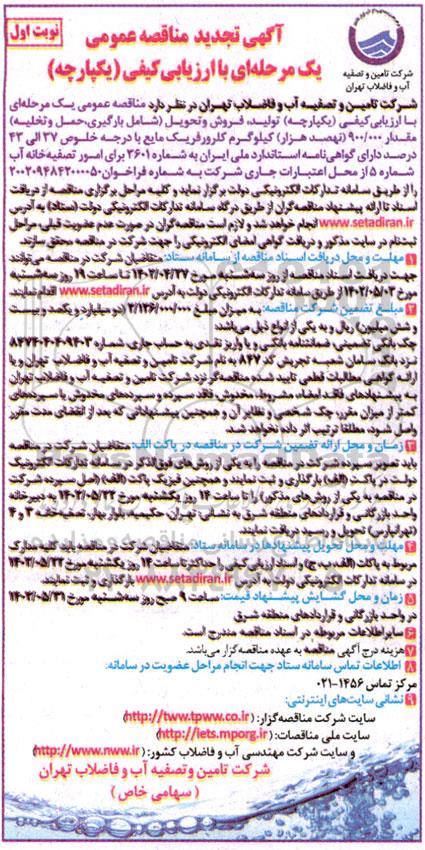 نوبت اول
آگهی تجدید مناقصه عمومی
یک مرحله‌ای با ارزیابی کیفی (یکپارچه)
شرکت تامین و تصفیه
آب و فاضلاب تهران
شرکت تامین و تصفیه آب و فاضلاب تهران در نظر دارد مناقصه عمومی یک مرحله‌ای
با ارزیابی کیفی (یکپارچه) تولید، فروش و تحویل (شامل بارگیری، حمل و تخلیه)
مقدار ۹۰۰/۰۰۰ (نهصد هزار) کیلوگرم کلرورفریک مایع با درجه خلوص ۳۷ الی ۴۳
درصد دارای گواهی‌نامه استاندارد ملی ایران به شماره ۳۶۰۱ برای امور تصفیه‌خانه آب
شماره ۵ از محل اعتبارات جاری شرکت به شماره فراخوان ۲۰۰۲۰۹۴۸۴۲۰۰۰۰۵۰
را از طریق سامانه تدارکات الکترونیکی دولت برگزار نماید و کلیه مراحل برگزاری مناقصه از دریافت
اسناد تا ارائه پیشنهاد مناقصه‌گران از طریق درگاه سامانه تدارکات الکترونیکی دولت (ستاد) به آدرس
www.setadiran.ir انجام خواهد شد و لازم است مناقصه‌گران در صورت عدم عضویت قبلی، مراحل
ثبت‌نام در سایت مذکور و دریافت گواهی امضای الکترونیکی را جهت شرکت در مناقصه محقق سازند.
۱ مهلت و محل دریافت اسناد مناقصه از سامانه ستاد: متقاضیان شرکت در مناقصه می‌توانند
جهت دریافت اسناد مناقصه از روز مورخ ۱۴۰۲/۰۴/۲۷ تا ساعت ۱۹ روز سه‌شنبه
مورخ ۱۴۰۲/۰۵/۰۳ از طریق سامانه تدارکات الکترونیکی دولت به آدرس www.setadiran.ir اقدام نمایند
۲ مبلغ تضمین شرکت در مناقصه: به میزان مبلغ ۲/۱۳۶/۰۰۰/۰۰۰ (دو میلیارد و یکصد و بیست
و شش میلیون) ریال و به یکی از انواع ذیل می‌باشد:
چک بانکی تضمینی، ضمانتنامه بانکی و یا واریز نقدی به حساب جاری شماره
نزد بانک پارسیان شعبه تجریش کد ۸۴۷ به نام شرکت تامین و تصفیه آب و فاضلاب تهران و یا
ارائه گواهی مطالبات قطعی تایید شده مناقصه‌گر نزد شرکت تامین و تصفیه آب و فاضلاب تهران
به پیشنهادهای فاقد سپرده، مشروط، مخدوش، فاقد سپرده و سپرده‌های مخدوش یا سپرده‌های
کمتر از میزان مقرر، چک شخصی و نظایر آن و همچنین پیشنهاداتی که بعد از انقضای مدت مقرر
واصل شود، مطلقا ترتیب اثر داده نخواهد شد.
۳ زمان و محل ارائه تضمین شرکت در مناقصه در پاکت الف: متقاضیان شرکت در مناقصه
باید تصویر سپرده شرکت در مناقصه را به یکی از روش‌های فوق‌الذکر در سامانه تدارکات الکترونیک
دولت در پاکت (الف) بارگذاری و ثبت نمایند و همچنین فیزیک پاکت (الف) (اصل سپرده شرکت
در مناقصه به یکی از روش‌های مذکور) را تا ساعت ۱۴ روز یکشنبه مورخ ۱۴۰۲/۰۵/۲۲ به دبیرخانه
واحد بازرگانی و قراردادهای منطقه شرق به نشانی: تهران، حکیمیه، بلوار بهار، تصفیه‌خانه ۳ و ۴
(تهرانپارس) تحویل و رسید دریافت نمایند.
۴ مهلت و محل تحویل پیشنهادها در سامانه ستاد: متقاضیان شرکت در مناقصه باید کلیه مدارک
مربوط به پاکات (الف، ب، ج) و اسناد ارزیابی کیفی را حداکثر تا ساعت ۱۴ روز یکشنبه مورخ ۱۴۰۲/۰۵/۲۲
در سامانه تدارکات الکترونیکی دولت به آدرس www.setadiran.ir بارگذاری و ثبت نمایند.
۵ زمان و محل گشایش پیشنهاد قیمت: ساعت ۹ صبح روز سه‌شنبه مورخ ۱۴۰۲/۰۵/۳۱
در واحد بازرگانی و قراردادهای منطقه شرق
۶ سایر اطلاعات مربوطه در اسناد مناقصه مندرج است.
۷ هزینه درج آگهی مناقصه به عهده مناقصه‌گزار می‌باشد.
۸ اطلاعات تماس سامانه ستاد جهت انجام مراحل عضویت در سامانه:
مرکز تماس ۱۴۵۶-۰۲۱
۹ نشانی سایت‌های اینترنتی:
سایت شرکت مناقصه‌گزار: (http://tww.tpww.co.ir)
سایت ملی مناقصات: (http://iets.mporg.ir)
و سایت شرکت مهندسی آب و فاضلاب کشور: (http://www.nww.ir)
شرکت تامین و تصفیه آب و فاضلاب تهران
(سهامی خاص)